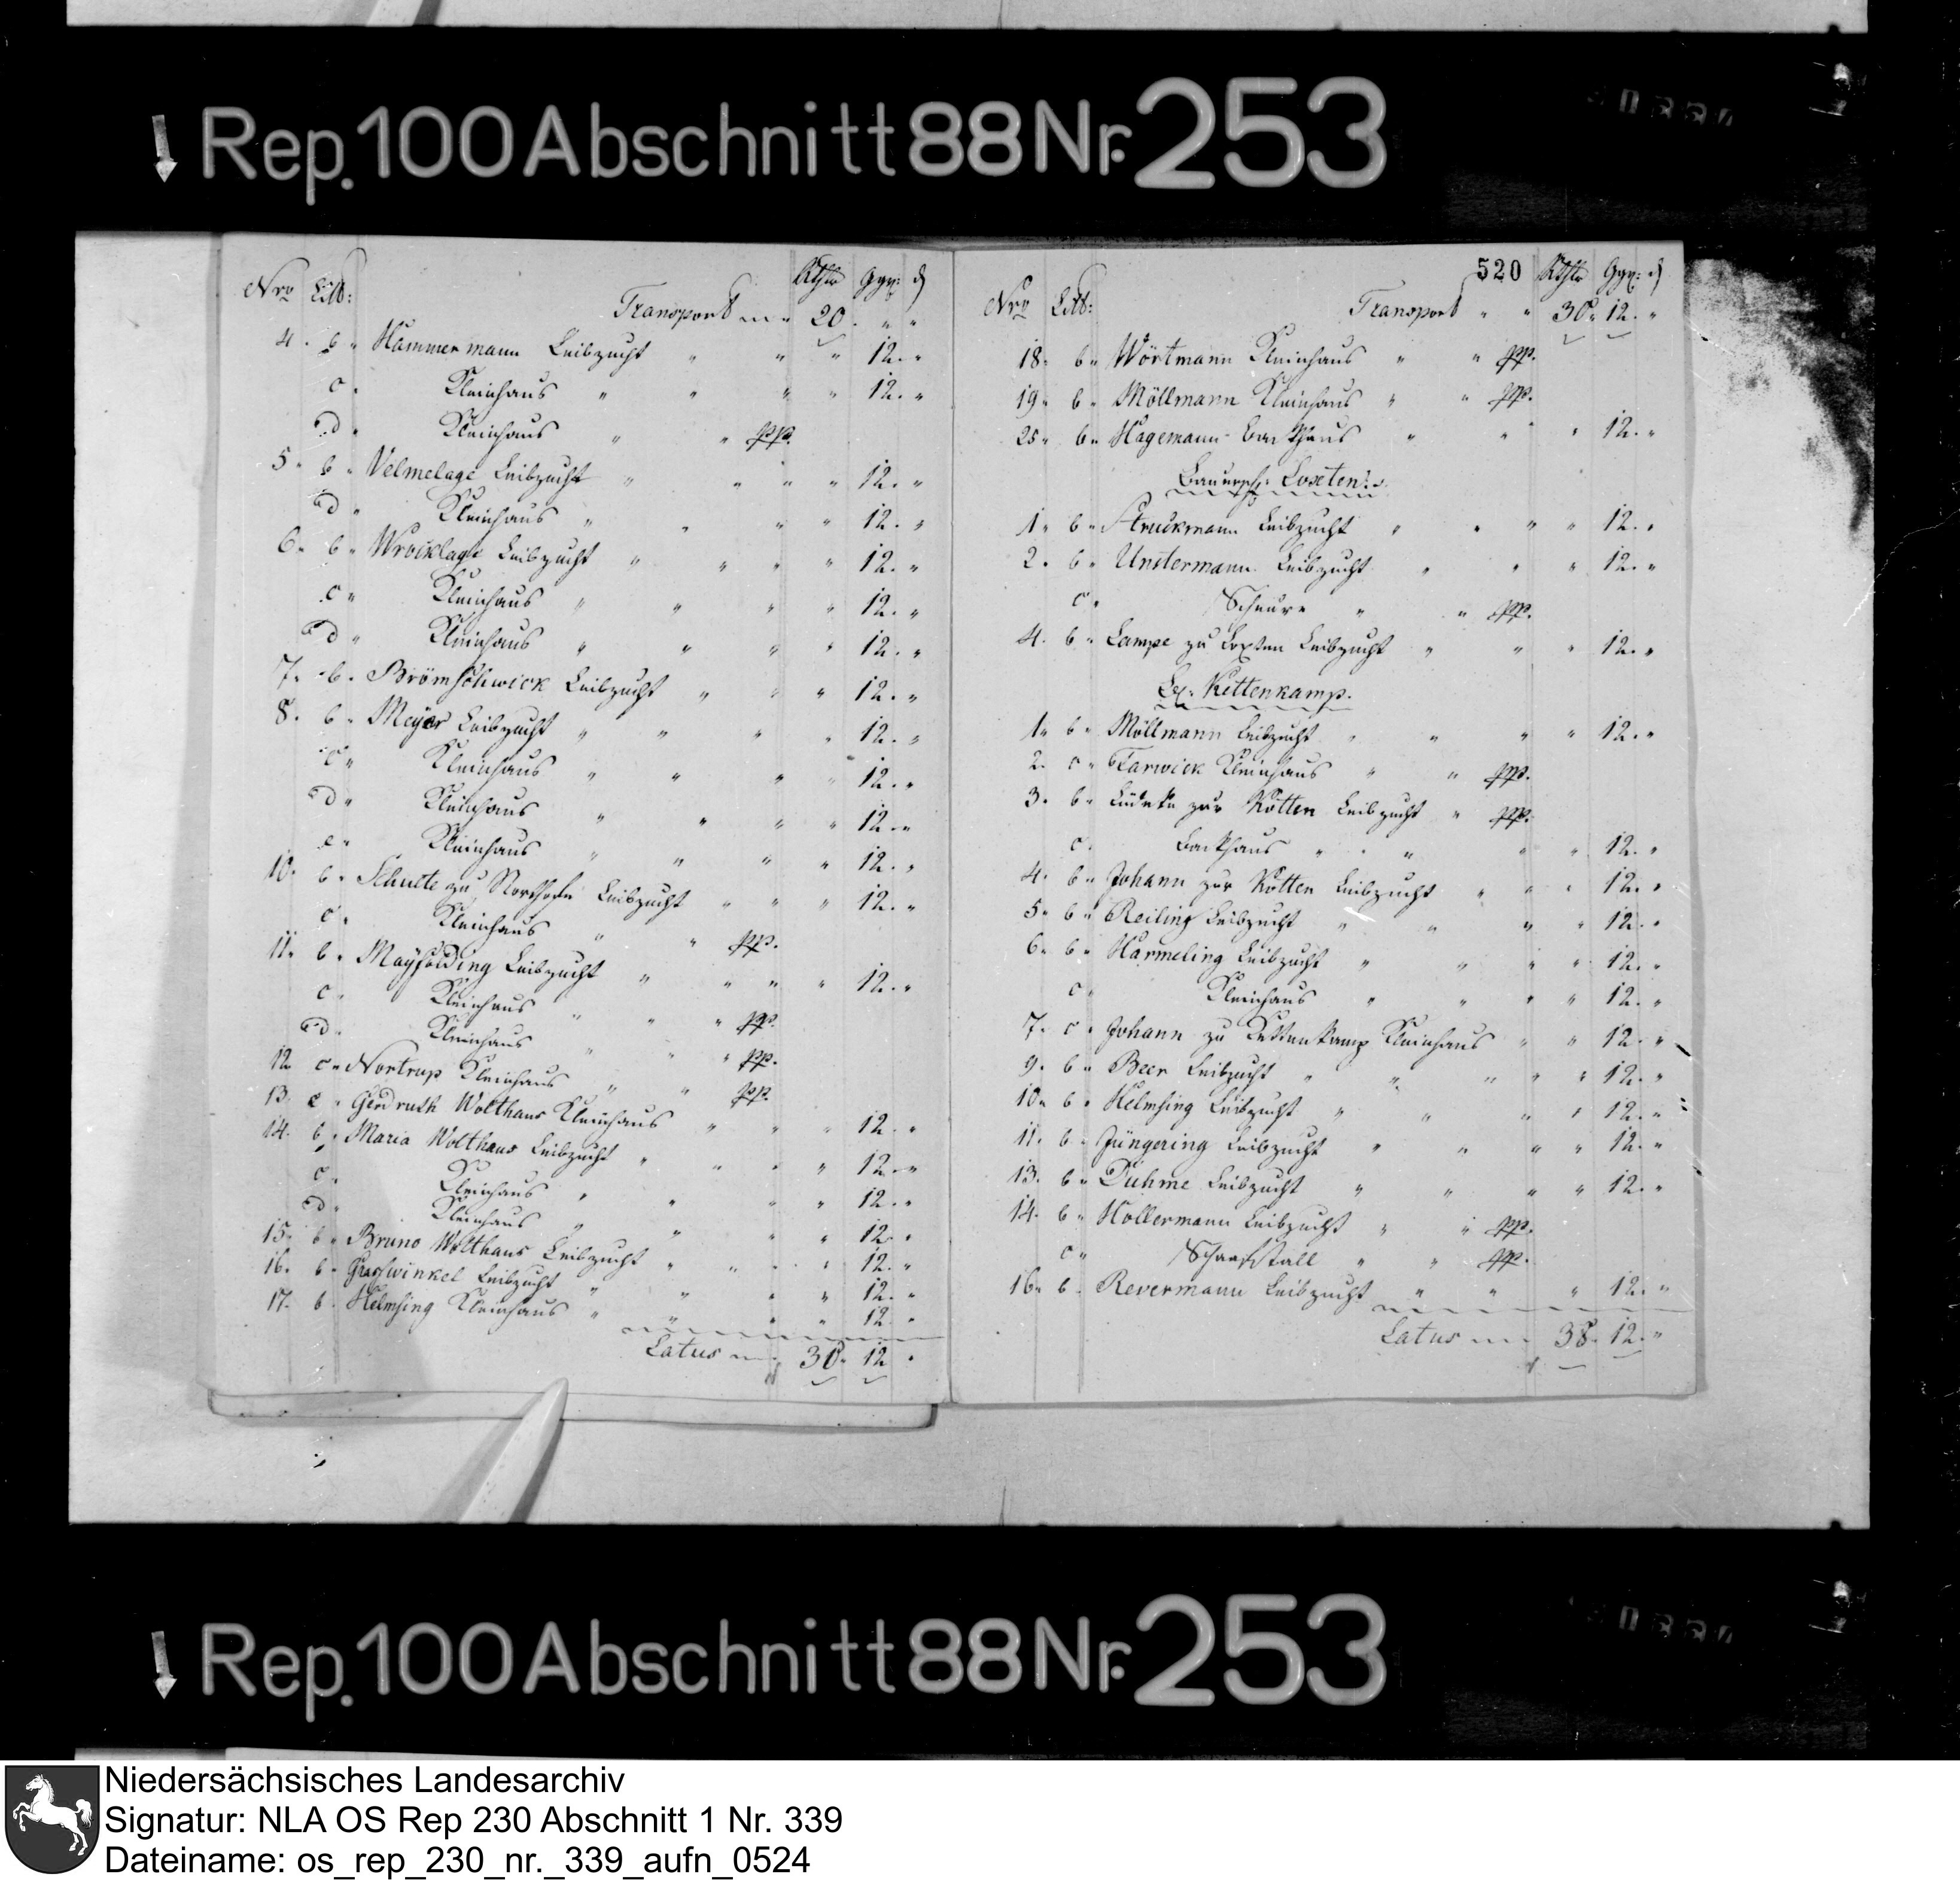 Rep. 100 Abschnitt 88 Nr. 253
Nro Litt: Rthlr Ggr: ₰
Transport „ „ 20. „ „
4. b „ Hammermann Leibzucht „ „ „ 12. „
c „ Kleinhaus „ „ „ „ 12. „
d „ Kleinhaus „ „ pp.
5 „ b „ Velmelage Leibzucht „ „ „ „ 12. „
d „ Kleinhaus „ „ „ „ 12. „
6 „ b „ Wrocklage Leibzucht „ „ „ „ 12. „
c „ Kleinhaus „ „ „ „ 12. „
d „ Kleinhaus „ „ „ „ 12. „
7. b. Brömschwick Leibzucht „ „ „ 12. „
8. b „ Meyer Leibzucht „ „ „ „ 12. „
c „ Kleinhaus „ „ „ „ 12. „
d „ Kleinhaus „ „ „ „ 12. „
e „ Kleinhaus „ „ „ „ 12. „
10. b „ Schulte zu Northofe Leibzucht „ „ „ 12. „
c „ Kleinhaus „ „ pp.
11. b „ Leibzucht „ „ „ „ 12. „
c „ Kleinhaus „ „ „ pp.
d „ Kleinhaus „ „ „ pp.
12. c „ Nortrup Kleinhaus „ „ pp.
13. c „ Gerdruth Wolthaus Kleinhaus „ „ „ 12. „
14. b „ Maria Wolthaus Leibzucht „ „ „ „ 12. „
c „ Kleinhaus „ „ „ „ 12. „
d „ Kleinhaus „ „ „ „ 12. „
15. b „ Bruno Wolthaus Leibzucht „ „ „ „ 12. „
16. b „ Grasswinkel Leibzucht „ „ „ „ 12. „
17. b „ Helmsing Kleinhaus „ „ „ „ 12. „
Latus 30. 12 „
520
Nro Litt: Rthlr Ggr: ₰
Transport „ „ 30. 12. „
18. b „ Wörtmann Kleinhaus „ „ pp.
19 „ b „ Möllmann Kleinhaus „ „ pp.
25 „ b „ Hagemann Backhaus „ „ „ 12. „
Bauersch: Loxten.
1 „ b „ Struckmann Leibzucht „ „ „ „ 12. „
2. b „ Unstermann Leibzucht „ „ „ 12. „
c „ Scheure „ „ pp.
4. b „ Lampe zu Loxten Leibzucht „ „ „ 12. „
Kettenkamp.
1 „ b „ Möllmann Leibzucht „ „ „ „ 12. „
2. c „ Farwick Kleinhaus „ „ pp.
3. b „ Lüdeke zur Kötten Leibzucht „ pp.
c. Backhaus „ „ „ „ 12. „
4. b „ Johann zur Kötten Leibzucht „ „ „ 12. „
5 „ b „ Reiling Leibzucht „ „ „ „ 12. „
6. b „ Harmeling Leibzucht „ „ „ „ 12. „
c „ Kleinhaus „ „ „ „ 12. „
7. c „ Johann zu Kettenkamp Kleinhaus „ „ 12. „
9. b „ Beer Leibzucht „ „ „ „ „ 12. „
10 „ b „ Helmsing Leibzucht „ „ „ „ 12. „
11. b „ Jüngering Leibzucht „ „ „ „ 12. „
13. b „ Duhme Leibzucht „ „ „ „ 12. „
14. b „ Hollermann Leibzucht „ „ pp.
c „ Schaafstall „ „ pp.
16. b „ Revermann Leibzucht „ „ „ 12. „
Latus 38. 12. „
Rep. 100 Abschnitt 88 Nr. 253
Niedersächsisches Landesarchiv
Signatur: NLA OS Rep 230 Abschnitt 1 Nr. 339
Dateiname: os_rep_230_nr._339_aufn_0524